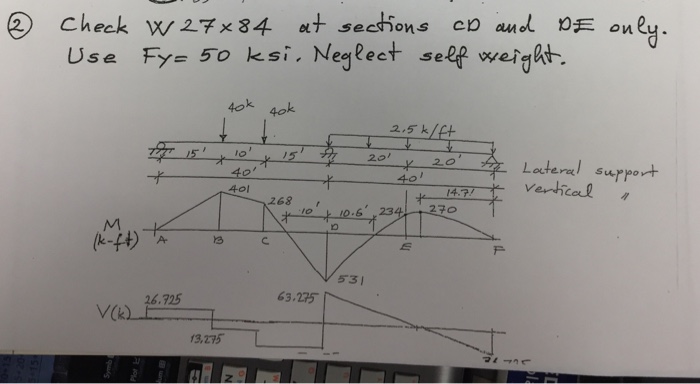 ② Check W 27x84 at sections CD and DE only.
Use Fy= 50 ksi. Neglect self weight.
40k 40k
2.5 k/ft
15' 10' 15' 20' 20'
40' 40'
Lateral support
vertical "
14.7'
401 268 10' 10.6' 234 270
M
(k-ft)
A B C D E F
531
26.725 63.275
V(k)
13.275